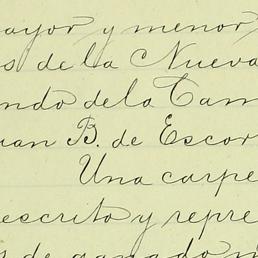 ayor y menor
s de la Nueva
ndo de la Cam
uan B. de Escor
Una carpe
escrito y repre
s de ganado m